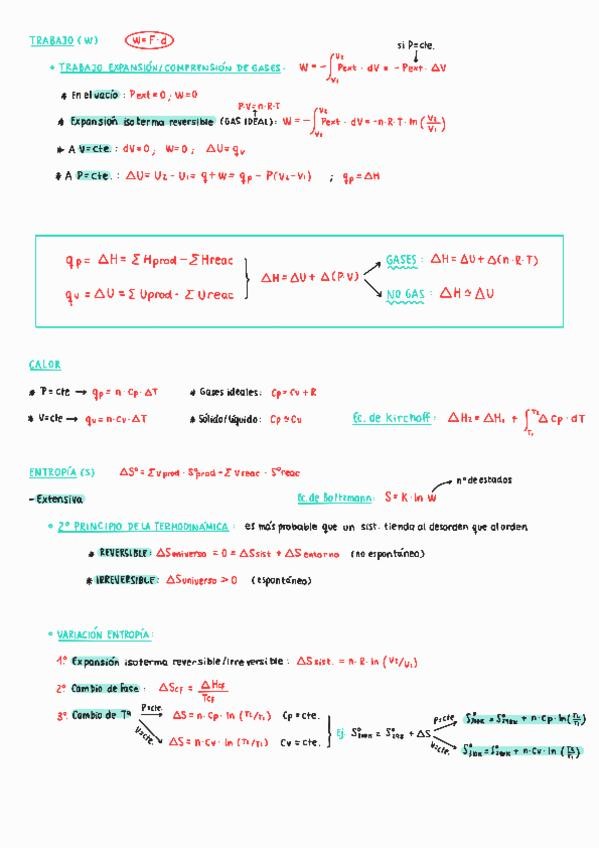 TRABAJO (W) W = F · d
si P=cte.
• TRABAJO EXPANSIÓN/COMPRENSIÓN DE GASES: W = -∫V1V2 Pext · dV = -Pext · ΔV
* En el vacío : Pext = 0 ; W=0
P·V=n·R·T
* Expansión isoterma reversible (GAS IDEAL): W = -∫V1V2 Pext · dV = -n·R·T· ln (V2/V1)
* A V=cte. : dV=0 ; W=0 ; ΔU=qv
* A P=cte. : ΔU = U2 - U1 = q + W = qp - P(V2-V1) ; qp = ΔH
qp = ΔH = Σ Hprod - Σ Hreac
qv = ΔU = Σ Uprod - Σ Ureac
ΔH = ΔU + Δ(P·V)
GASES : ΔH = ΔU + Δ(n·R·T)
NO GAS : ΔH ≃ ΔU
CALOR
* P=cte → qp = n · Cp · ΔT * Gases ideales: Cp = Cv + R
* V=cte → qv = n · Cv · ΔT * Sólido/líquido: Cp ≃ Cv Ec. de Kirchoff: ΔH2 = ΔH1 + ∫T1T2 Δ Cp · dT
ENTROPÍA (S) ΔSº = Σ νprod · Sºprod - Σ νreac · Sºreac
nº de estados
- Extensiva Ec. de Boltzmann: S = K · ln W
• 2º PRINCIPIO DE LA TERMODINÁMICA : es más probable que un sist. tienda al desorden que al orden
* REVERSIBLE: ΔSuniverso = 0 = ΔSsist + ΔSentorno (no espontáneo)
* IRREVERSIBLE: ΔSuniverso > 0 (espontáneo)
• VARIACIÓN ENTROPÍA:
1º Expansión isoterma reversible/irreversible : ΔSsist. = n · R · ln (V2/V1)
2º Cambio de fase : ΔSCF = ΔHCF/TCF
3º Cambio de Tª P=cte. ΔS = n · Cp · ln (T2/T1) Cp = cte.
V=cte. ΔS = n · Cv · ln (T2/T1) Cv = cte.